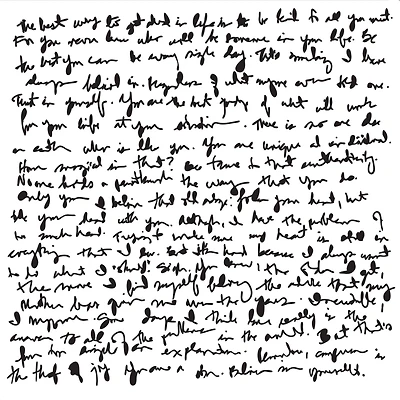 The best way to get ahead in life is to be kind to all you meet.
For you never know who will be someone in your life. Be
the best you can be every single day. This something I have
always believed in. Regardless of what anyone ever told me.
Trust in yourself. You are the best judge of what will work
for you life at your. There is no one else
on earth who is like you. You are unique and individual.
How magical is that? Be true to that authenticity.
No one holds a the way that you do.
Only you. I believe the old adage: follow your head, but
you with you. Although, I have the problem of
so much head. Trying to make sure my heart is still in
everything that I do. But it's hard because I always want
to do what I should. So, you know, the older I get,
the more I find myself following the advice that my
mother has given me over the years. Inevitable,
I suppose. Some days I think love really is the
answer to all of the problems in the world. But that's
far too simple an explanation. Remember, comparison is
the thief of joy. You are a star. Believe in yourself.